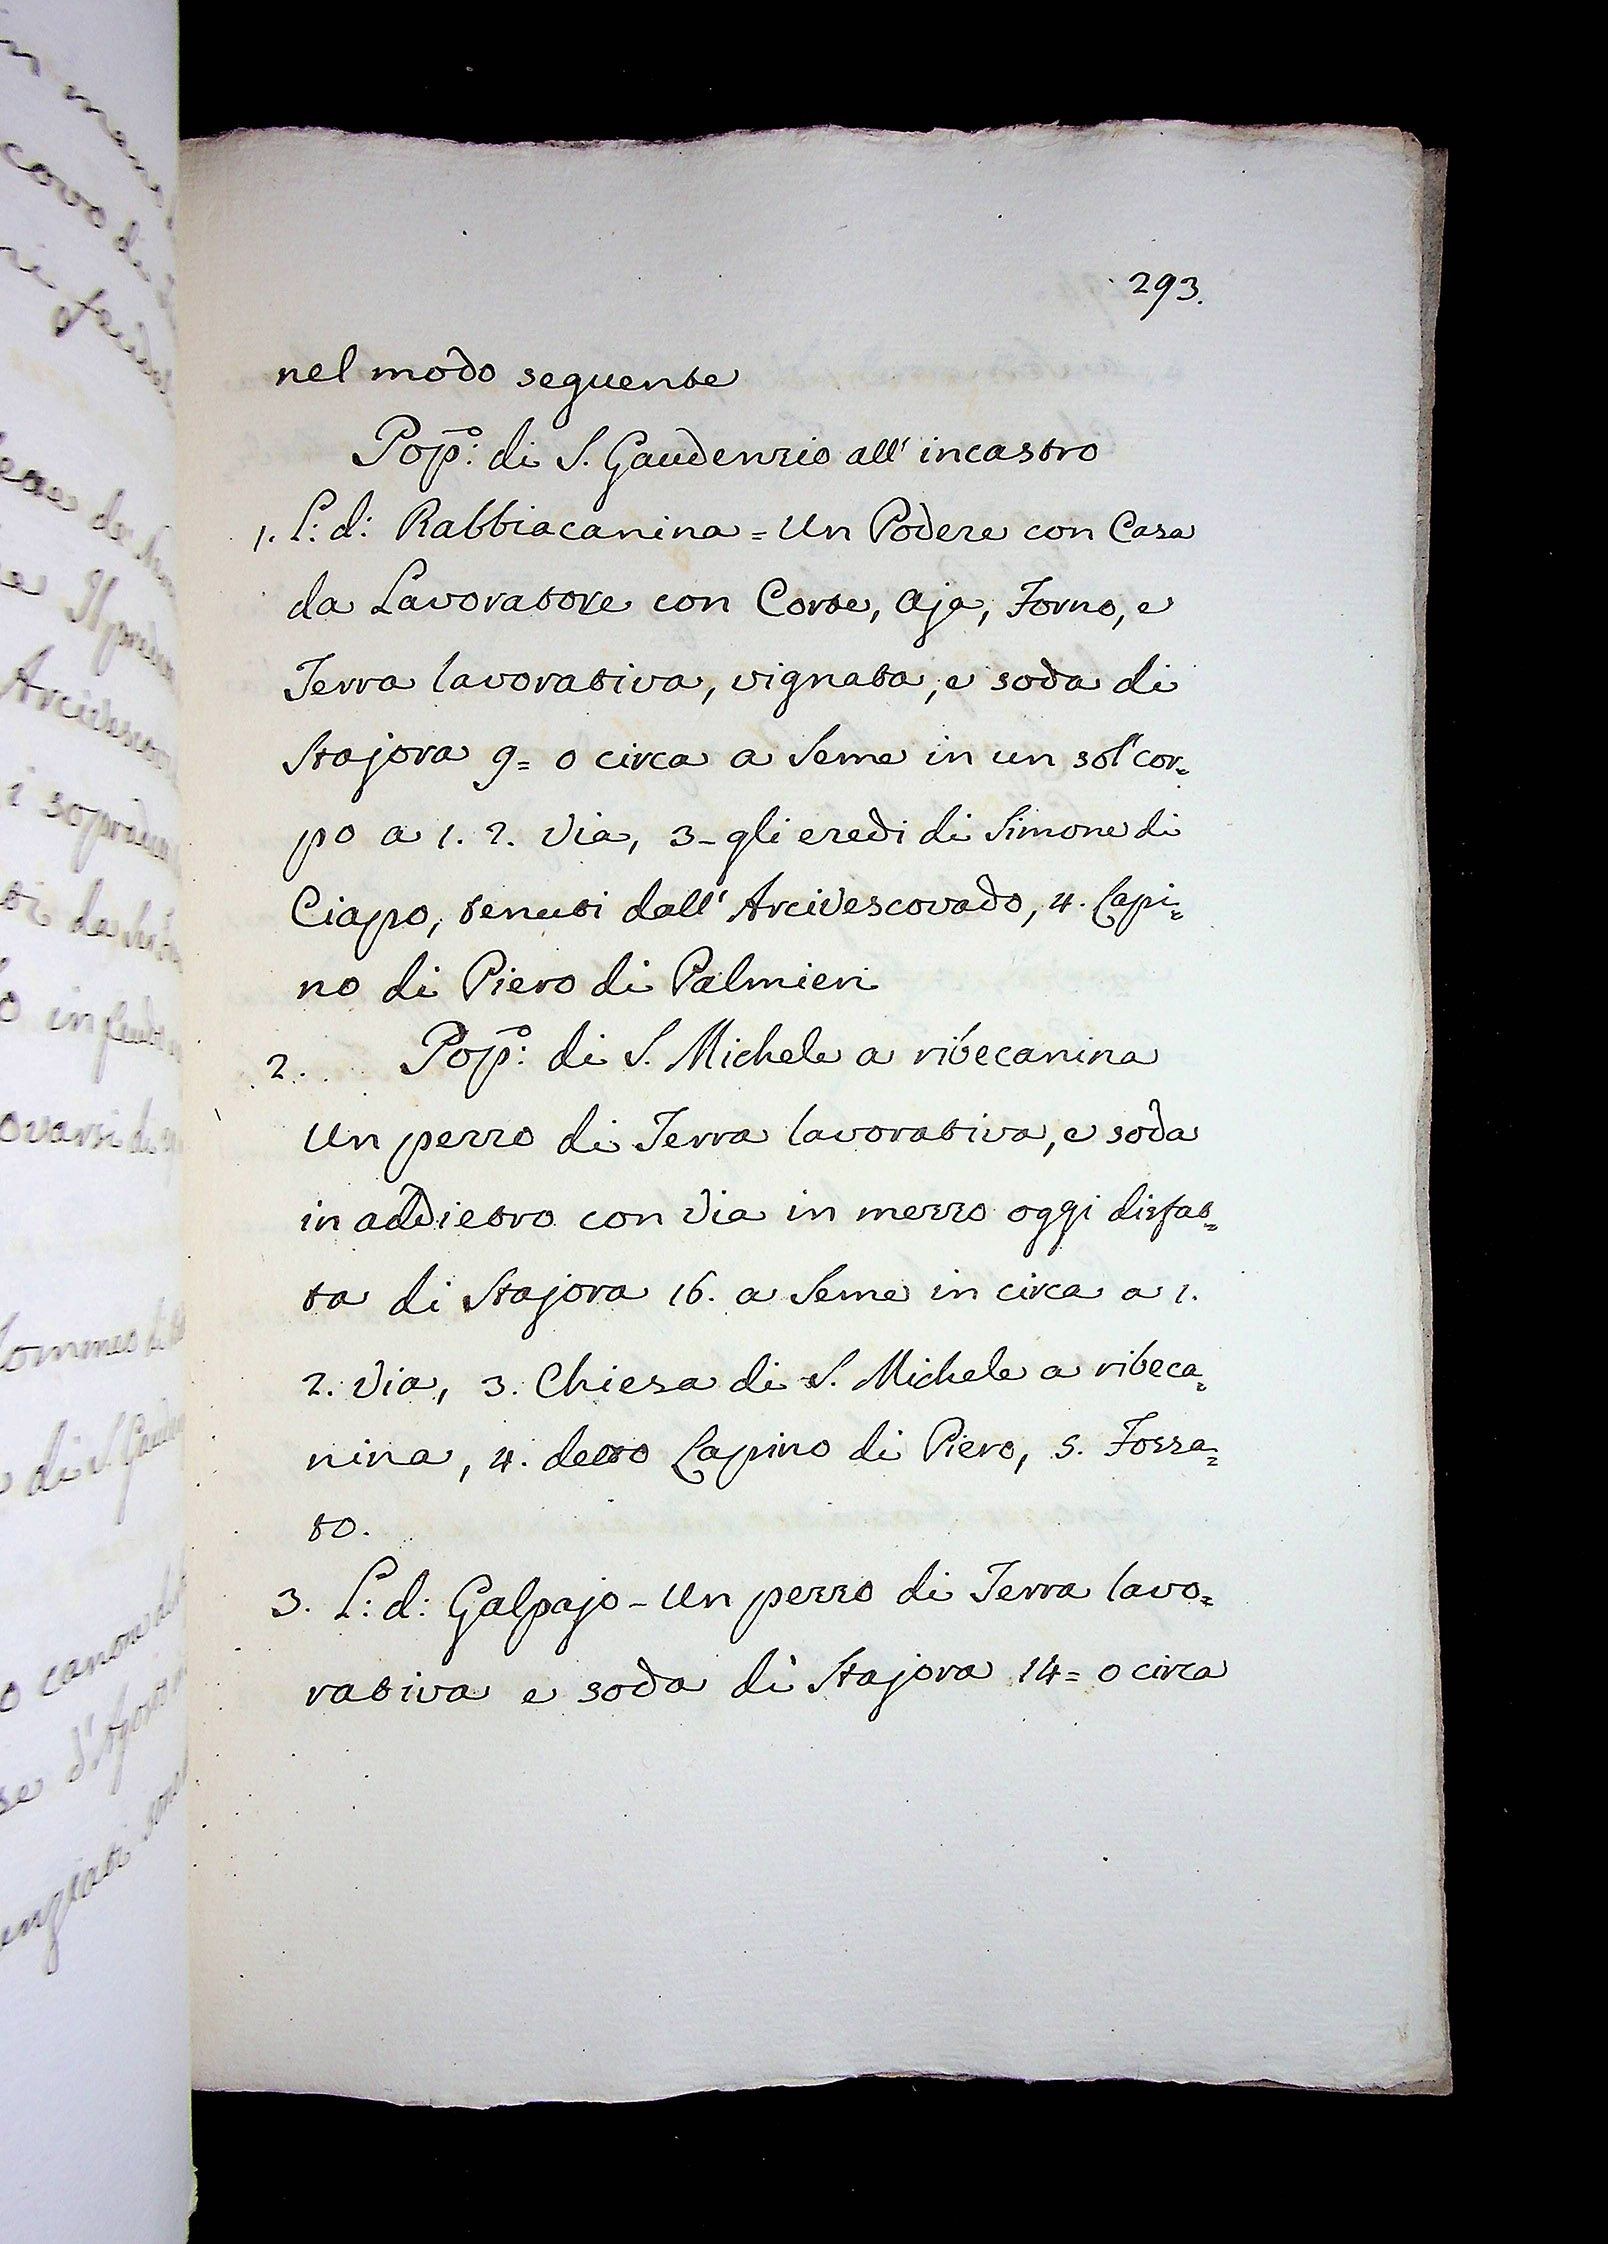 293.
nel modo seguente
Pop̄.º: di S. Gaudenzio all' incastro
1. L: d: Rabbiacanina = Un Podere con Casa
da Lavoratore con Corte, Aja, Forno, e
Terra lavorativa, vignata, e soda di
Stajora 9= o circa a Seme in un sol cor=
po a 1. 2. Via, 3- gli eredi di Simone di
Ciapo, tenuti dall' Arcivescovado, 4. Lapi=
no di Piero di Palmieri
2. Pop̄.º: di S. Michele a ribecanina
Un pezzo di Terra lavorativa, e soda
in addietro con Via in mezzo oggi disfat=
ta di Stajora 16. a Seme in circa a 1.
2. Via, 3. Chiesa di S. Michele a ribeca=
nina, 4. detto Lapino di Piero, 5. Fossa=
to.
3. L: d: Galpajo - Un pezzo di Terra lavo=
rativa e soda di Stajora 14= o circa